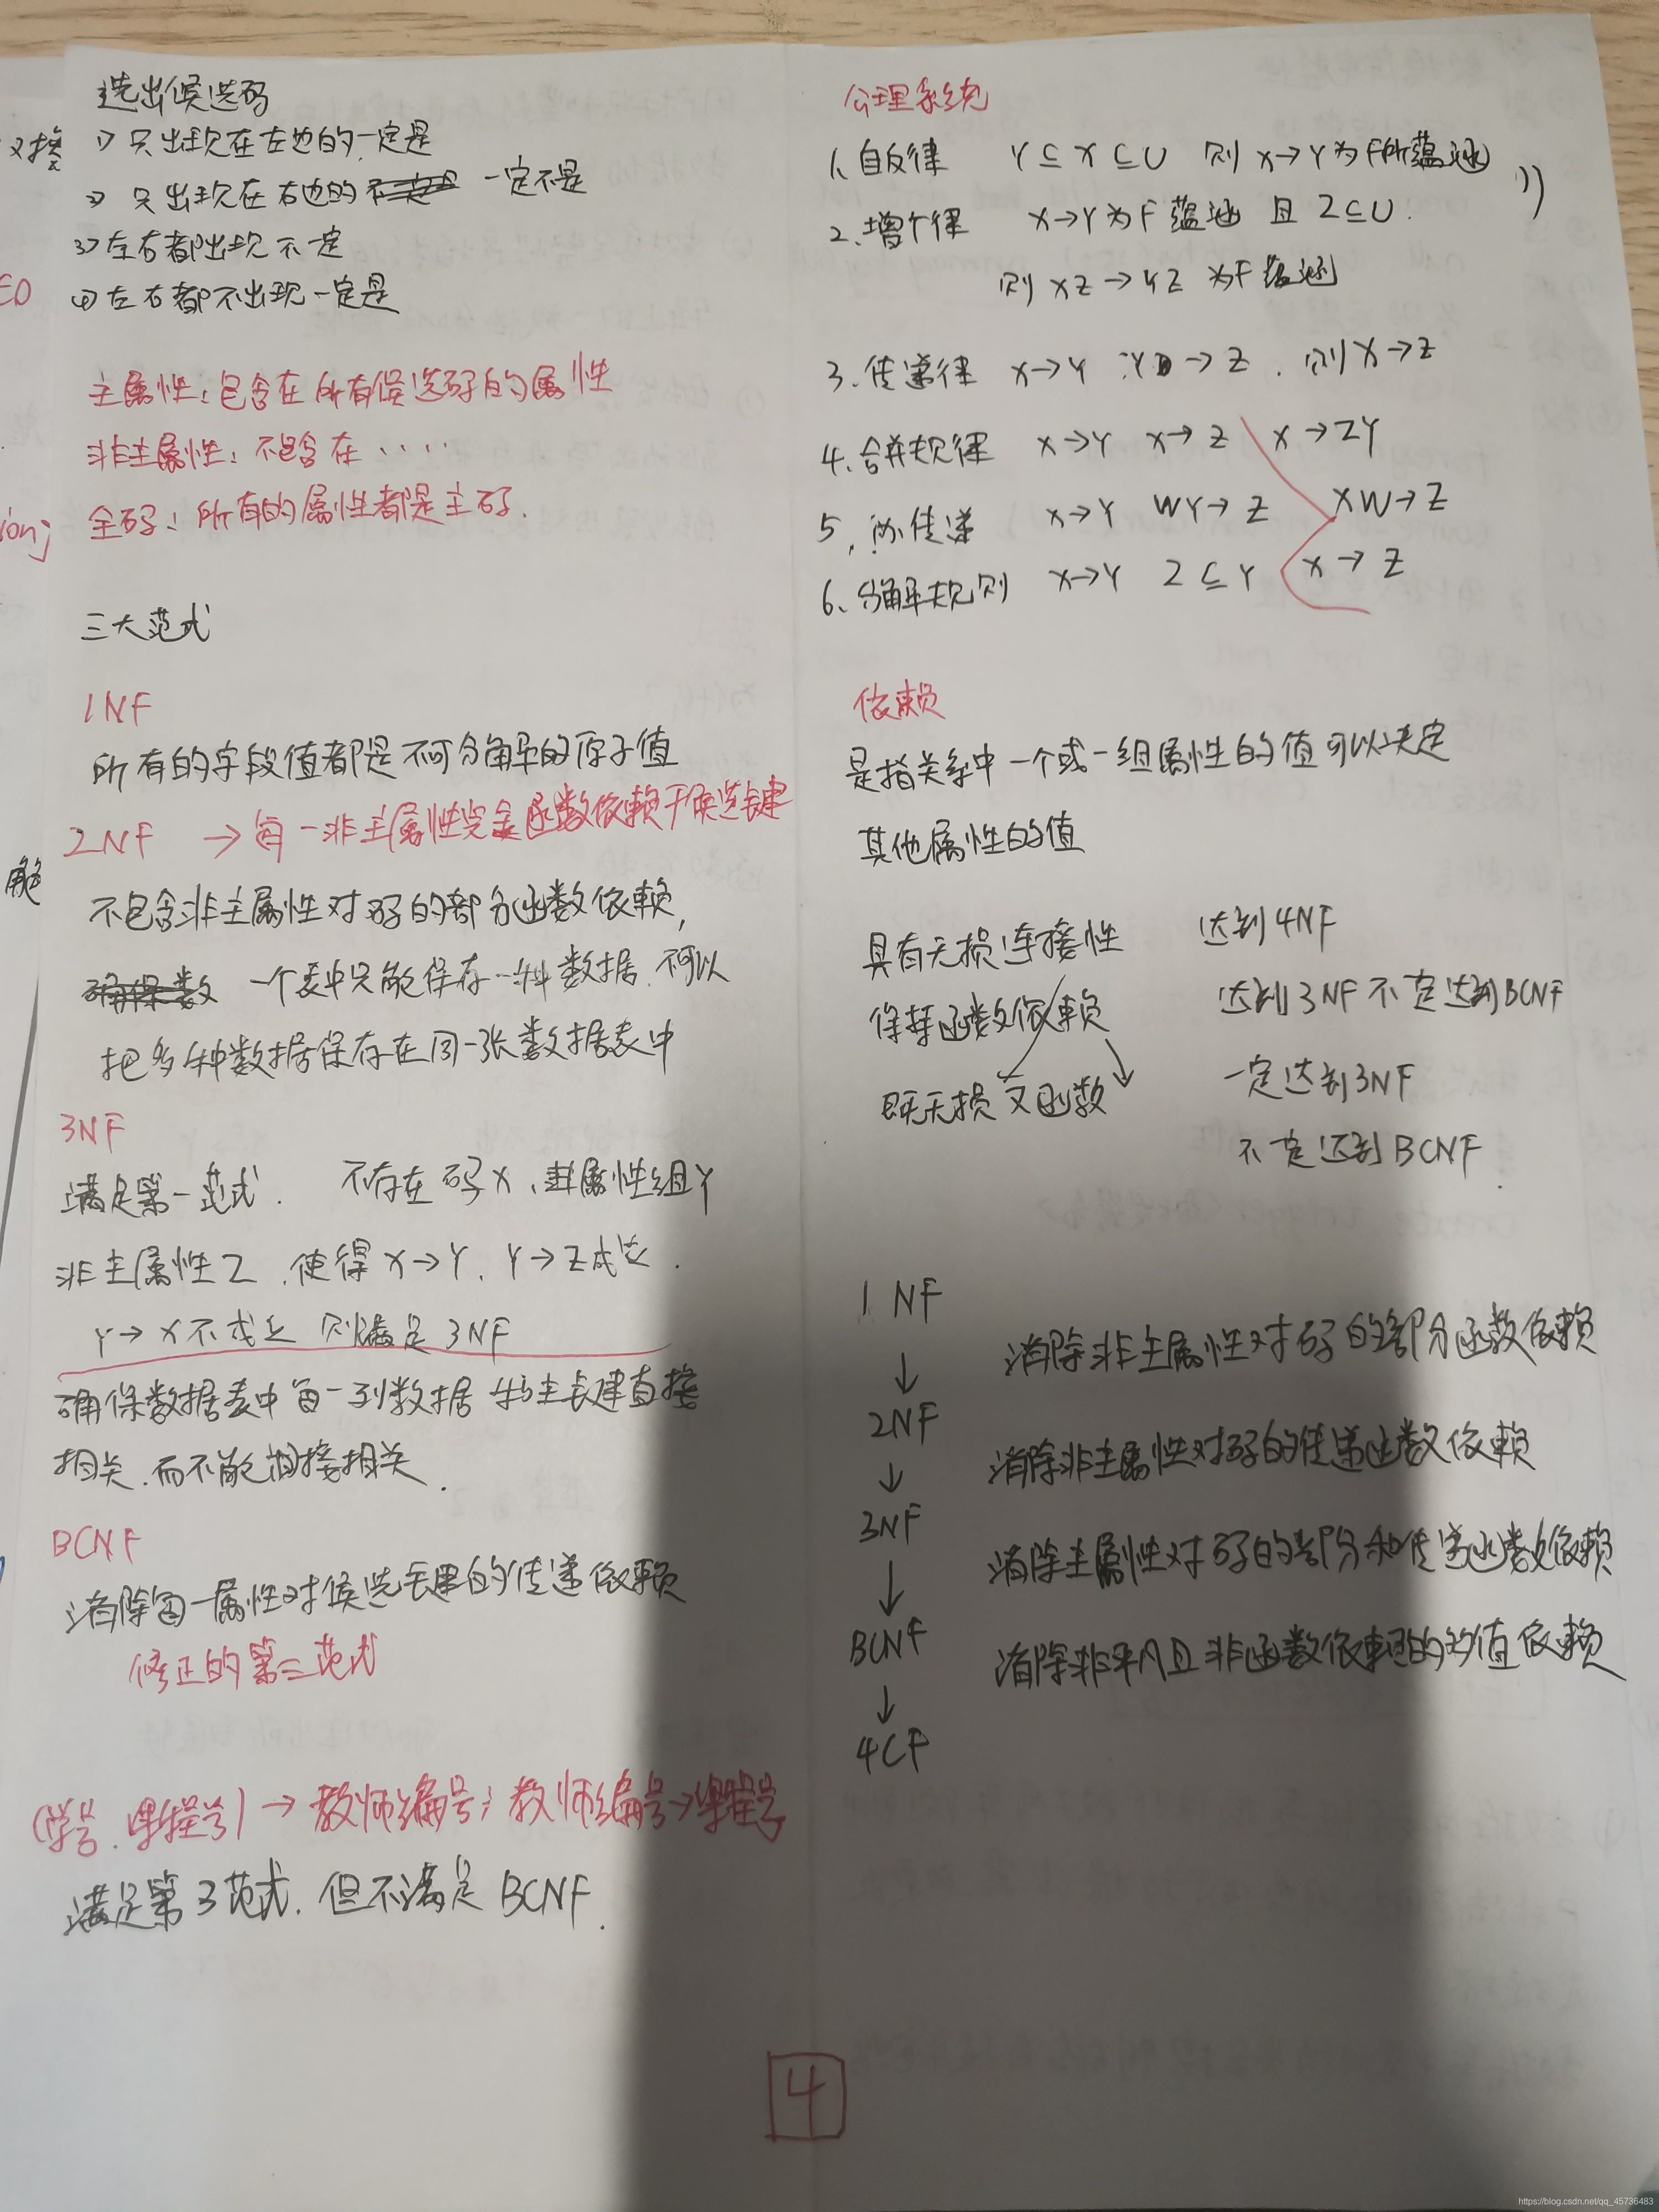 选出候选码
1) 只出现在左边的一定是
2) 只出现在右边的 一定不是
3) 左右都出现 不一定
4) 左右都不出现 一定是
主属性：包含在所有候选码的属性
非主属性：不包含在...
全码：所有的属性都是主码.
三大范式
1NF
所有的字段值都是不可分解的原子值
2NF → 每一非主属性完全函数依赖于候选键
不包含非主属性对码的部分函数依赖,
确保数 一个表中只能保存一种数据.不可以
把多种数据保存在同一张数据表中
3NF
满足第一范式. 不存在码X、属性组Y
非主属性Z.使得X→Y、Y→Z成立.
Y→X不成立 则满足3NF
确保数据表中每一列数据与主键直接
相关.而不能 接相关.
BCNF
消除每一属性对候选键的传递依赖
修正的第三范式
(学号.课程号)→教师编号；教师编号→课程号
满足第3范式.但不满足BCNF.
公理系统
1、自反律 Y⊆X⊆U 则 X→Y为F所蕴涵
2、增广律 X→Y为F蕴涵 且 Z⊆U.
则 XZ→YZ 为F蕴涵
3、传递律 X→Y Y→Z. 则X→Z
4、合并规律 X→Y X→Z X→ZY
5、伪传递 X→Y WY→Z XW→Z
6、分解规则 X→Y Z⊆Y X→Z
依赖
是指关系中一个或一组属性的值可以决定
其他属性的值
具有无损连接性 达到4NF
保持函数依赖 达到3NF不一定达到BCNF
既无损又函数 一定达到3NF
不一定达到BCNF.
1NF
↓ 消除非主属性对码的部分函数依赖
2NF
↓ 消除非主属性对码的传递函数依赖
3NF
↓ 消除主属性对码的部分和传递函数依赖
BCNF
↓ 消除非平凡且非函数依赖的多值依赖
4CF
4
https://blog.csdn.net/qq_45736483